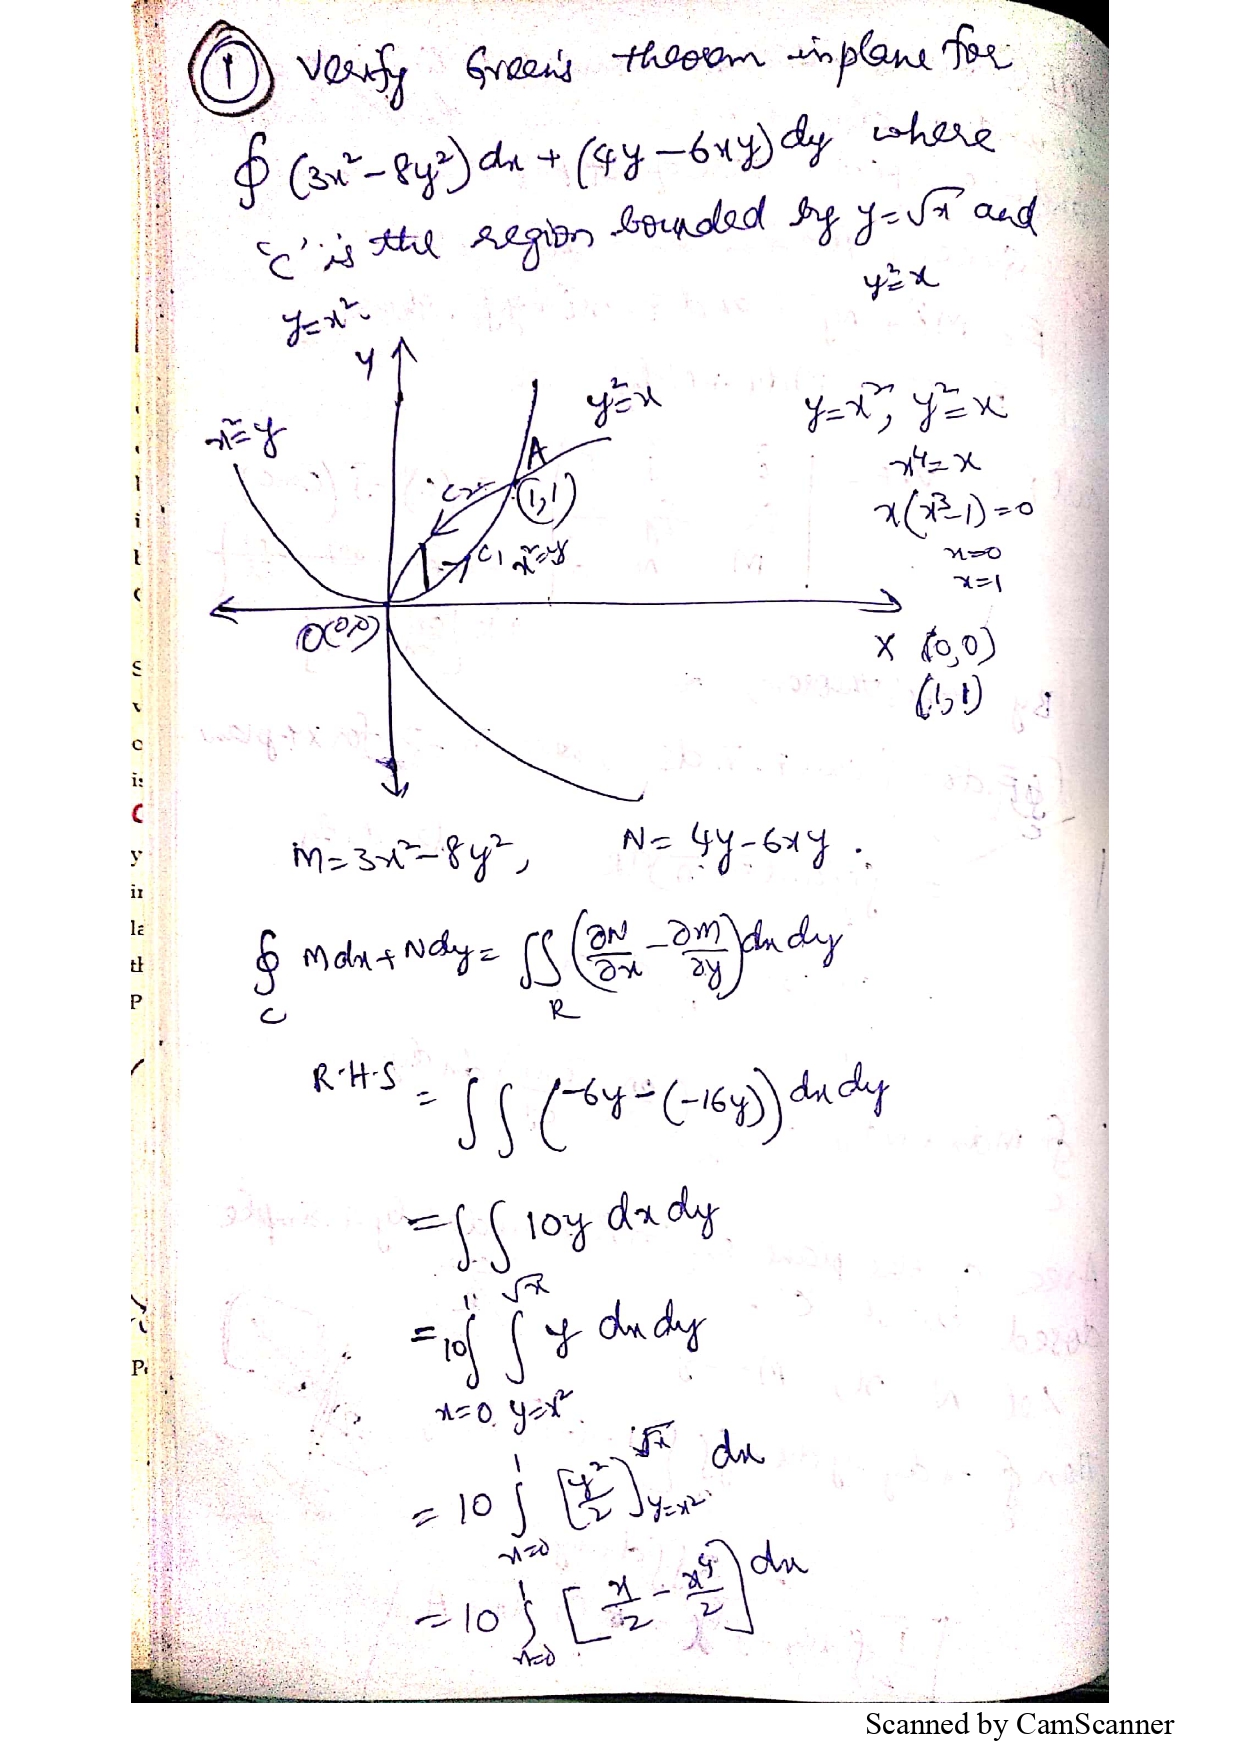 ① Verify Green's theorem in plane for
∮ (3x² - 8y²) dx + (4y - 6xy) dy where
'C' is the region bounded by y = √x and
y² = x
y = x².
Y
x² = y
y² = x
y = x², y² = x
A
x⁴ = x
C₂
(1,1)
x(x³ - 1) = 0
C₁ x² = y
x = 0
x = 1
O(0,0)
X (0,0)
(1,1)
M = 3x² - 8y², N = 4y - 6xy .
∮_C Mdx + Ndy = ∬_R (∂N/∂x - ∂M/∂y) dx dy
R.H.S = ∫∫ (-6y - (-16y)) dx dy
= ∫∫ 10y dx dy
= 10 ∫_{x=0}^{1} ∫_{y=x²}^{√x} y dx dy
= 10 ∫_{x=0}^{1} [y²/2]_{y=x²}^{√x} dx
= 10 ∫_{x=0}^{1} [x/2 - x⁴/2] dx
Scanned by CamScanner